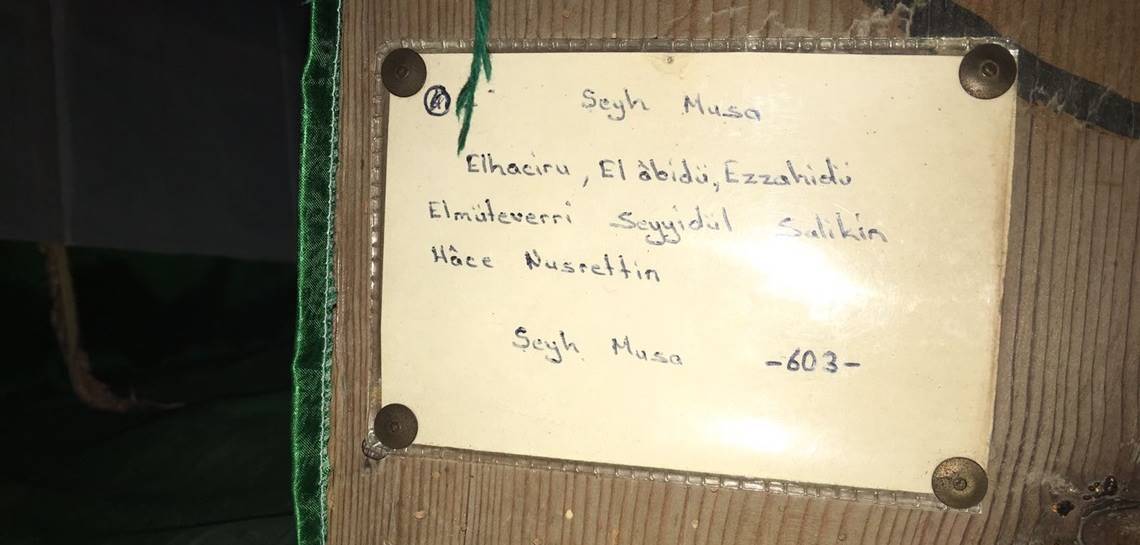 Şeyh Musa
Elhaciru, El âbidü, Ezzahidü
Elmüteverri Seyyidül Salikin
Hâce Nusrettin
Şeyh Musa -603-